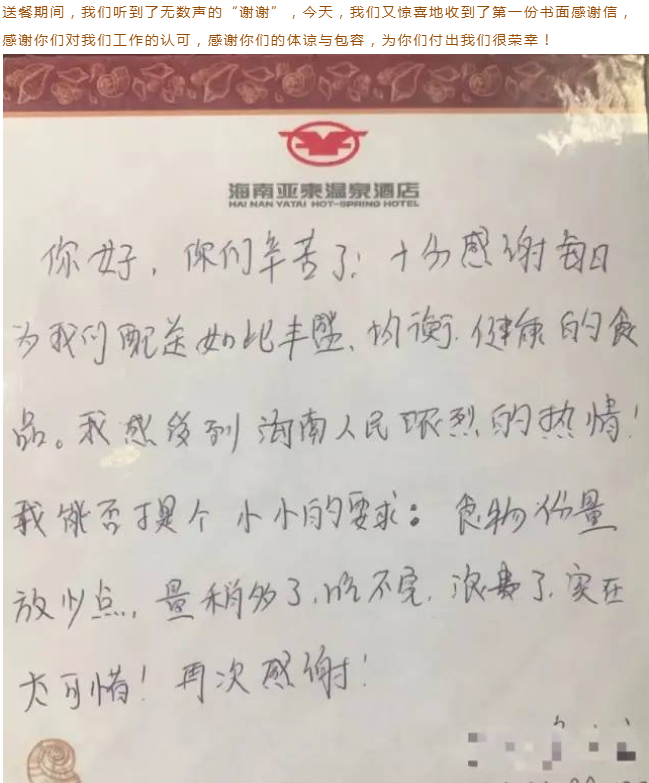 送餐期间，我们听到了无数声的“谢谢”，今天，我们又惊喜地收到了第一份书面感谢信，
感谢你们对我们工作的认可，感谢你们的体谅与包容，为你们付出我们很荣幸！
海南亚泰温泉酒店
HAI NAN YATAI HOT-SPRING HOTEL
你好，你们辛苦了！十分感谢每日
为我们配送如此丰盛、均衡、健康的食
品。我感受到海南人民浓烈的热情！
我能否提个小小的要求：食物份量
放少点，量稍多了，吃不完，浪费了，实在
太可惜！再次感谢！